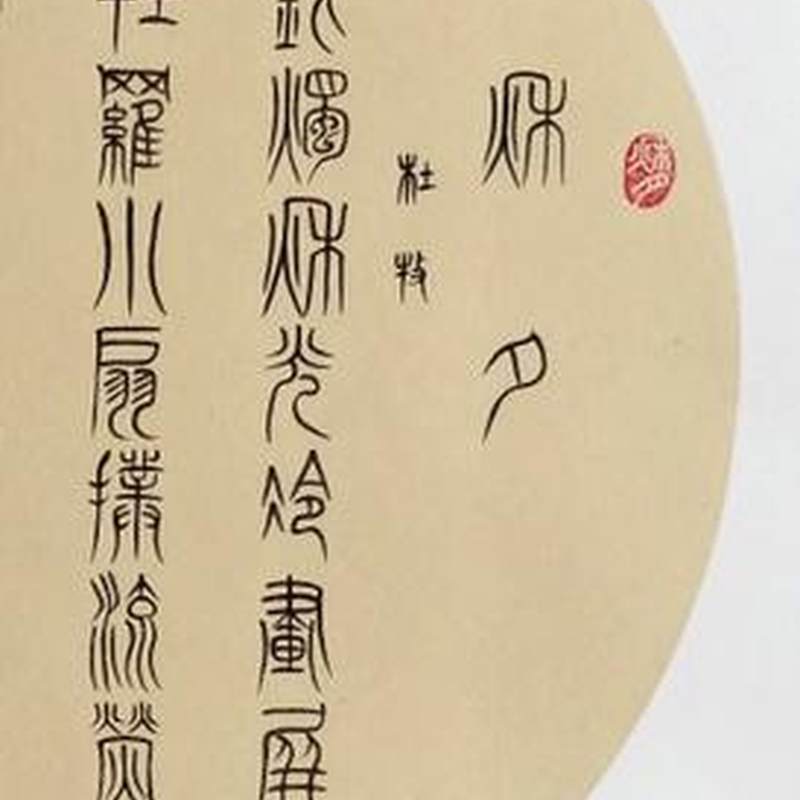 秌夕
杜牧
銀燭秌光冷畫屏
輕羅小扇撲流螢